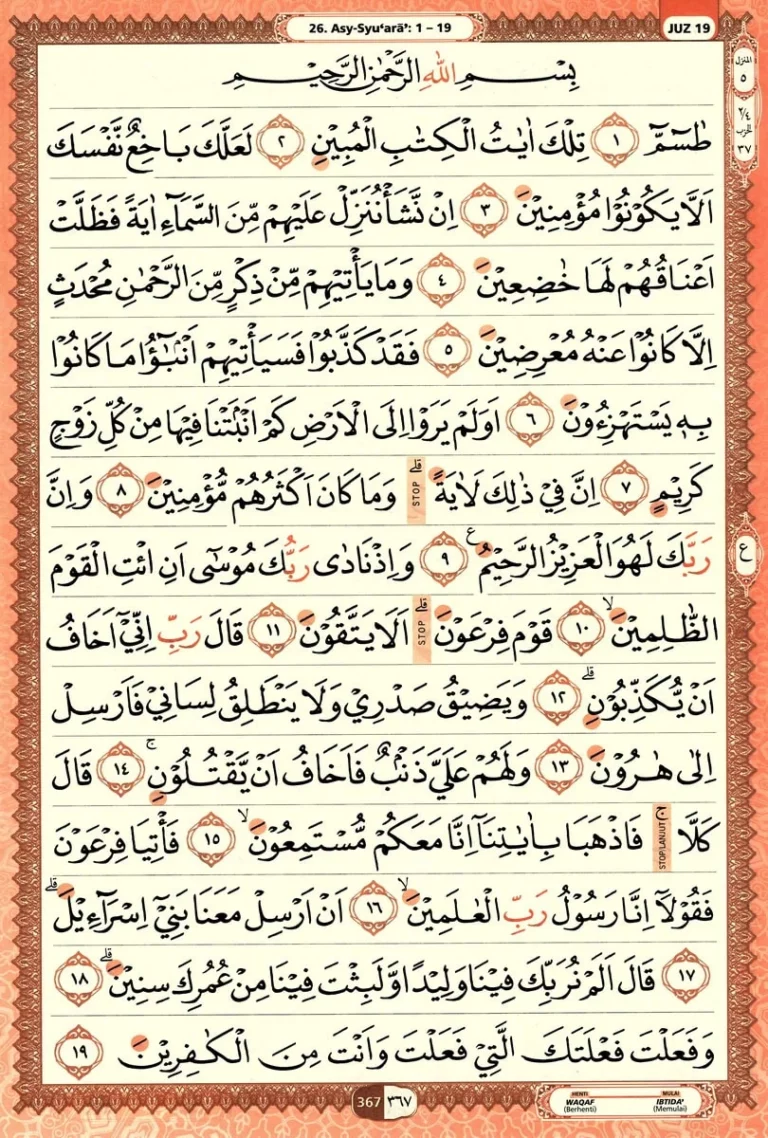 26. Asy-Syu‘arā’: 1 – 19
JUZ 19
المنزل
٥
٢/٤
الحزب
٣٧
بِسْمِ اللّٰهِ الرَّحْمٰنِ الرَّحِيْمِ
طٰسۤمّۤ ١ تِلْكَ اٰيٰتُ الْكِتٰبِ الْمُبِيْنِ ٢ لَعَلَّكَ بَاخِعٌ نَّفْسَكَ
اَلَّا يَكُوْنُوْا مُؤْمِنِيْنَ ٣ اِنْ نَّشَأْ نُنَزِّلْ عَلَيْهِمْ مِّنَ السَّمَاۤءِ اٰيَةً فَظَلَّتْ
اَعْنَاقُهُمْ لَهَا خٰضِعِيْنَ ٤ وَمَا يَأْتِيْهِمْ مِّنْ ذِكْرٍ مِّنَ الرَّحْمٰنِ مُحْدَثٍ
اِلَّا كَانُوْا عَنْهُ مُعْرِضِيْنَ ٥ فَقَدْ كَذَّبُوْا فَسَيَأْتِيْهِمْ اَنْۢبٰۤؤُا مَا كَانُوْا
بِهٖ يَسْتَهْزِءُوْنَ ٦ اَوَلَمْ يَرَوْا اِلَى الْاَرْضِ كَمْ اَنْۢبَتْنَا فِيْهَا مِنْ كُلِّ زَوْجٍ
كَرِيْمٍ ٧ اِنَّ فِيْ ذٰلِكَ لَاٰيَةً ۗ STOP وَمَا كَانَ اَكْثَرُهُمْ مُّؤْمِنِيْنَ ٨ وَاِنَّ
رَبَّكَ لَهُوَ الْعَزِيْزُ الرَّحِيْمُ ࣖ ٩ وَاِذْ نَادٰى رَبُّكَ مُوْسٰٓى اَنِ ائْتِ الْقَوْمَ
ع
الظّٰلِمِيْنَ ۙ ١٠ قَوْمَ فِرْعَوْنَ ۗ STOP اَلَا يَتَّقُوْنَ ١١ قَالَ رَبِّ اِنِّيْٓ اَخَافُ
اَنْ يُّكَذِّبُوْنِ ۗ ١٢ وَيَضِيْقُ صَدْرِيْ وَلَا يَنْطَلِقُ لِسَانِيْ فَاَرْسِلْ
اِلٰى هٰرُوْنَ ١٣ وَلَهُمْ عَلَيَّ ذَنْۢبٌ فَاَخَافُ اَنْ يَّقْتُلُوْنِ ۚ ١٤ قَالَ
كَلَّا ۚ STOP/LANJUT فَاذْهَبَا بِاٰيٰتِنَآ اِنَّا مَعَكُمْ مُّسْتَمِعُوْنَ ۙ ١٥ فَأْتِيَا فِرْعَوْنَ
فَقُوْلَآ اِنَّا رَسُوْلُ رَبِّ الْعٰلَمِيْنَ ۙ ١٦ اَنْ اَرْسِلْ مَعَنَا بَنِيْٓ اِسْرَاۤءِيْلَ ۗ
١٧ قَالَ اَلَمْ نُرَبِّكَ فِيْنَا وَلِيْدًا وَّلَبِثْتَ فِيْنَا مِنْ عُمُرِكَ سِنِيْنَ ۗ ١٨
وَفَعَلْتَ فَعْلَتَكَ الَّتِيْ فَعَلْتَ وَاَنْتَ مِنَ الْكٰفِرِيْنَ ١٩
367 ٣٦٧
HENTI MULAI
WAQAF IBTIDA'
(Berhenti) (Memulai)